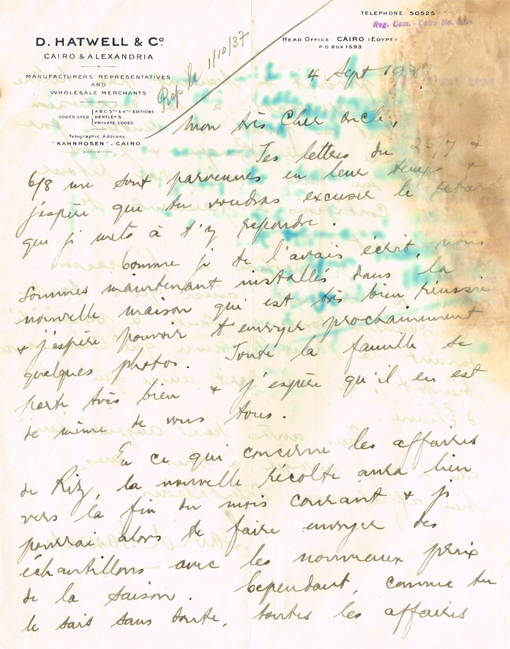 TELEPHONE 50525
Reg. Com. - Cairo No.
D. HATWELL & Co.
CAIRO & ALEXANDRIA
Head Office: CAIRO (Egypt)
P.O BOX 1593
MANUFACTURERS' REPRESENTATIVES
AND
WHOLESALE MERCHANTS
CODES USED A.B.C. 5TH & 6TH EDITIONS
BENTLEY'S
PRIVATE CODES
Telegraphic Address
"KAHNROSEN", CAIRO
1/10/37
4 Sept 193
Mon très Cher oncle,
Tes lettres du 25/7 &
6/8 me sont parvenues en leur temps &
j'espère que tu voudras excuser le retard
que je mets à t'y répondre.
Comme je te l'avais écrit, nous
sommes maintenant installés dans la
nouvelle maison qui est très bien réussie
& j'espère pouvoir t'envoyer prochainement
quelques photos. Toute la famille se
porte très bien & j'espère qu'il en est
de même de vous tous.
En ce qui concerne les affaires
de Riz, la nouvelle récolte aura lieu
vers la fin du mois courant & je
pourrai alors te faire envoyer des
échantillons avec les nouveaux prix
de la saison. Cependant, comme tu
le sais sans doute, toutes les affaires